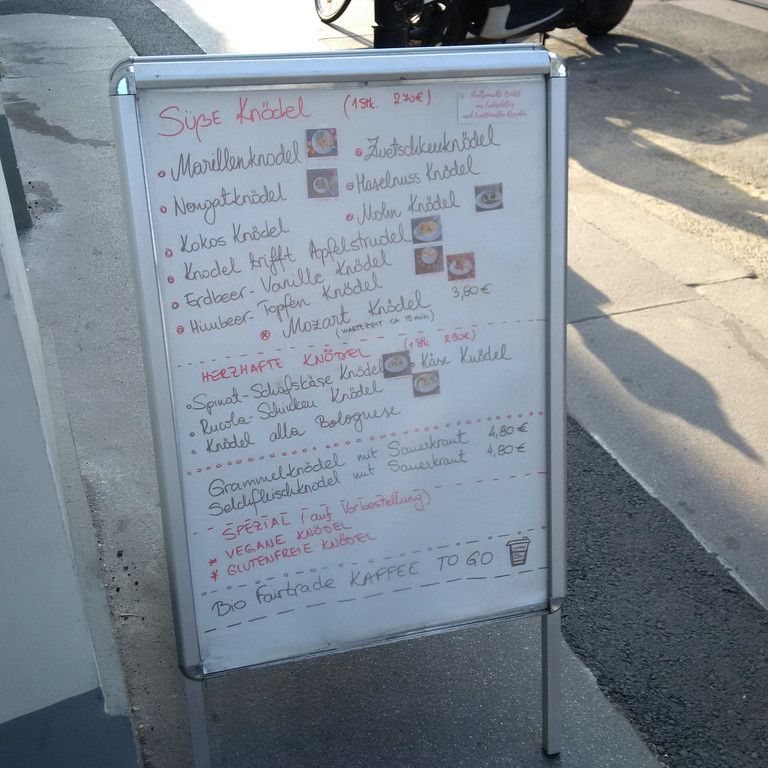 Süße Knödel (1 Stk. 2,70 €)
Handgemachte Knödel
nach traditionellen Rezepten
Marillenknödel
Zwetschkenknödel
Nougatknödel
Haselnuss Knödel
Kokos Knödel
Mohn Knödel
Knödel trifft Apfelstrudel
Erdbeer-Vanille Knödel
Himbeer-Topfen Knödel
Mozart Knödel 3,80 €
(WARTEZEIT CA. 15 MIN)
HERZHAFTE KNÖDEL (1 Stk 2,90 €)
Spinat-Schafskäse Knödel
Käse Knödel
Rucola-Schinken Knödel
Knödel alla Bolognese
Grammelknödel mit Sauerkraut 4,80 €
Selchfleischknödel mit Sauerkraut 4,80 €
SPEZIAL (auf Vorbestellung)
* VEGANE KNÖDEL
* GLUTENFREIE KNÖDEL
Bio Fairtrade KAFFEE TO GO